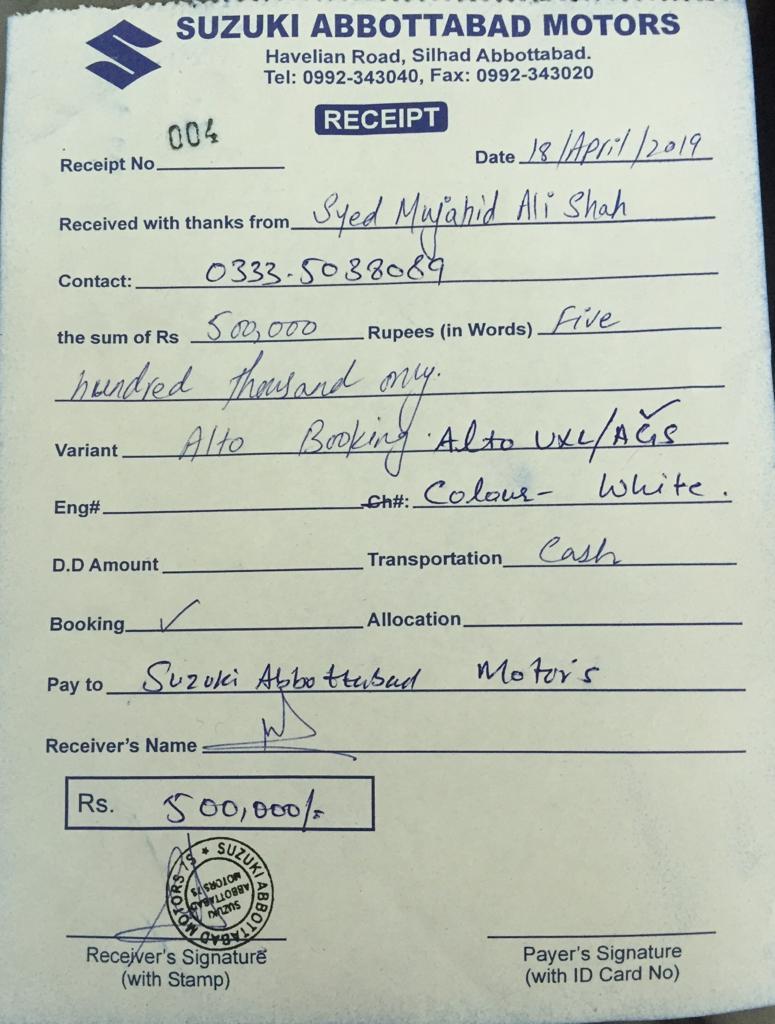 SUZUKI ABBOTTABAD MOTORS
Havelian Road, Silhad Abbottabad.
Tel: 0992-343040, Fax: 0992-343020
RECEIPT
Receipt No 004 Date 18/April/2019
Received with thanks from Syed Mujahid Ali Shah
Contact: 0333-5038089
the sum of Rs 500,000 Rupees (in Words) Five
hundred thousand only.
Variant Alto Booking. Alto VXL/AGS
Eng# Ch#: Colour- White.
D.D Amount Transportation Cash
Booking ✓ Allocation
Pay to Suzuki Abbottabad Motor's
Receiver's Name
Rs. 500,000/-
SUZUKI ABBOTTABAD MOTORS 7S
SUZUKI
ABBOTTABAD
MOTORS 7S
Receiver's Signature Payer's Signature
(with Stamp) (with ID Card No)